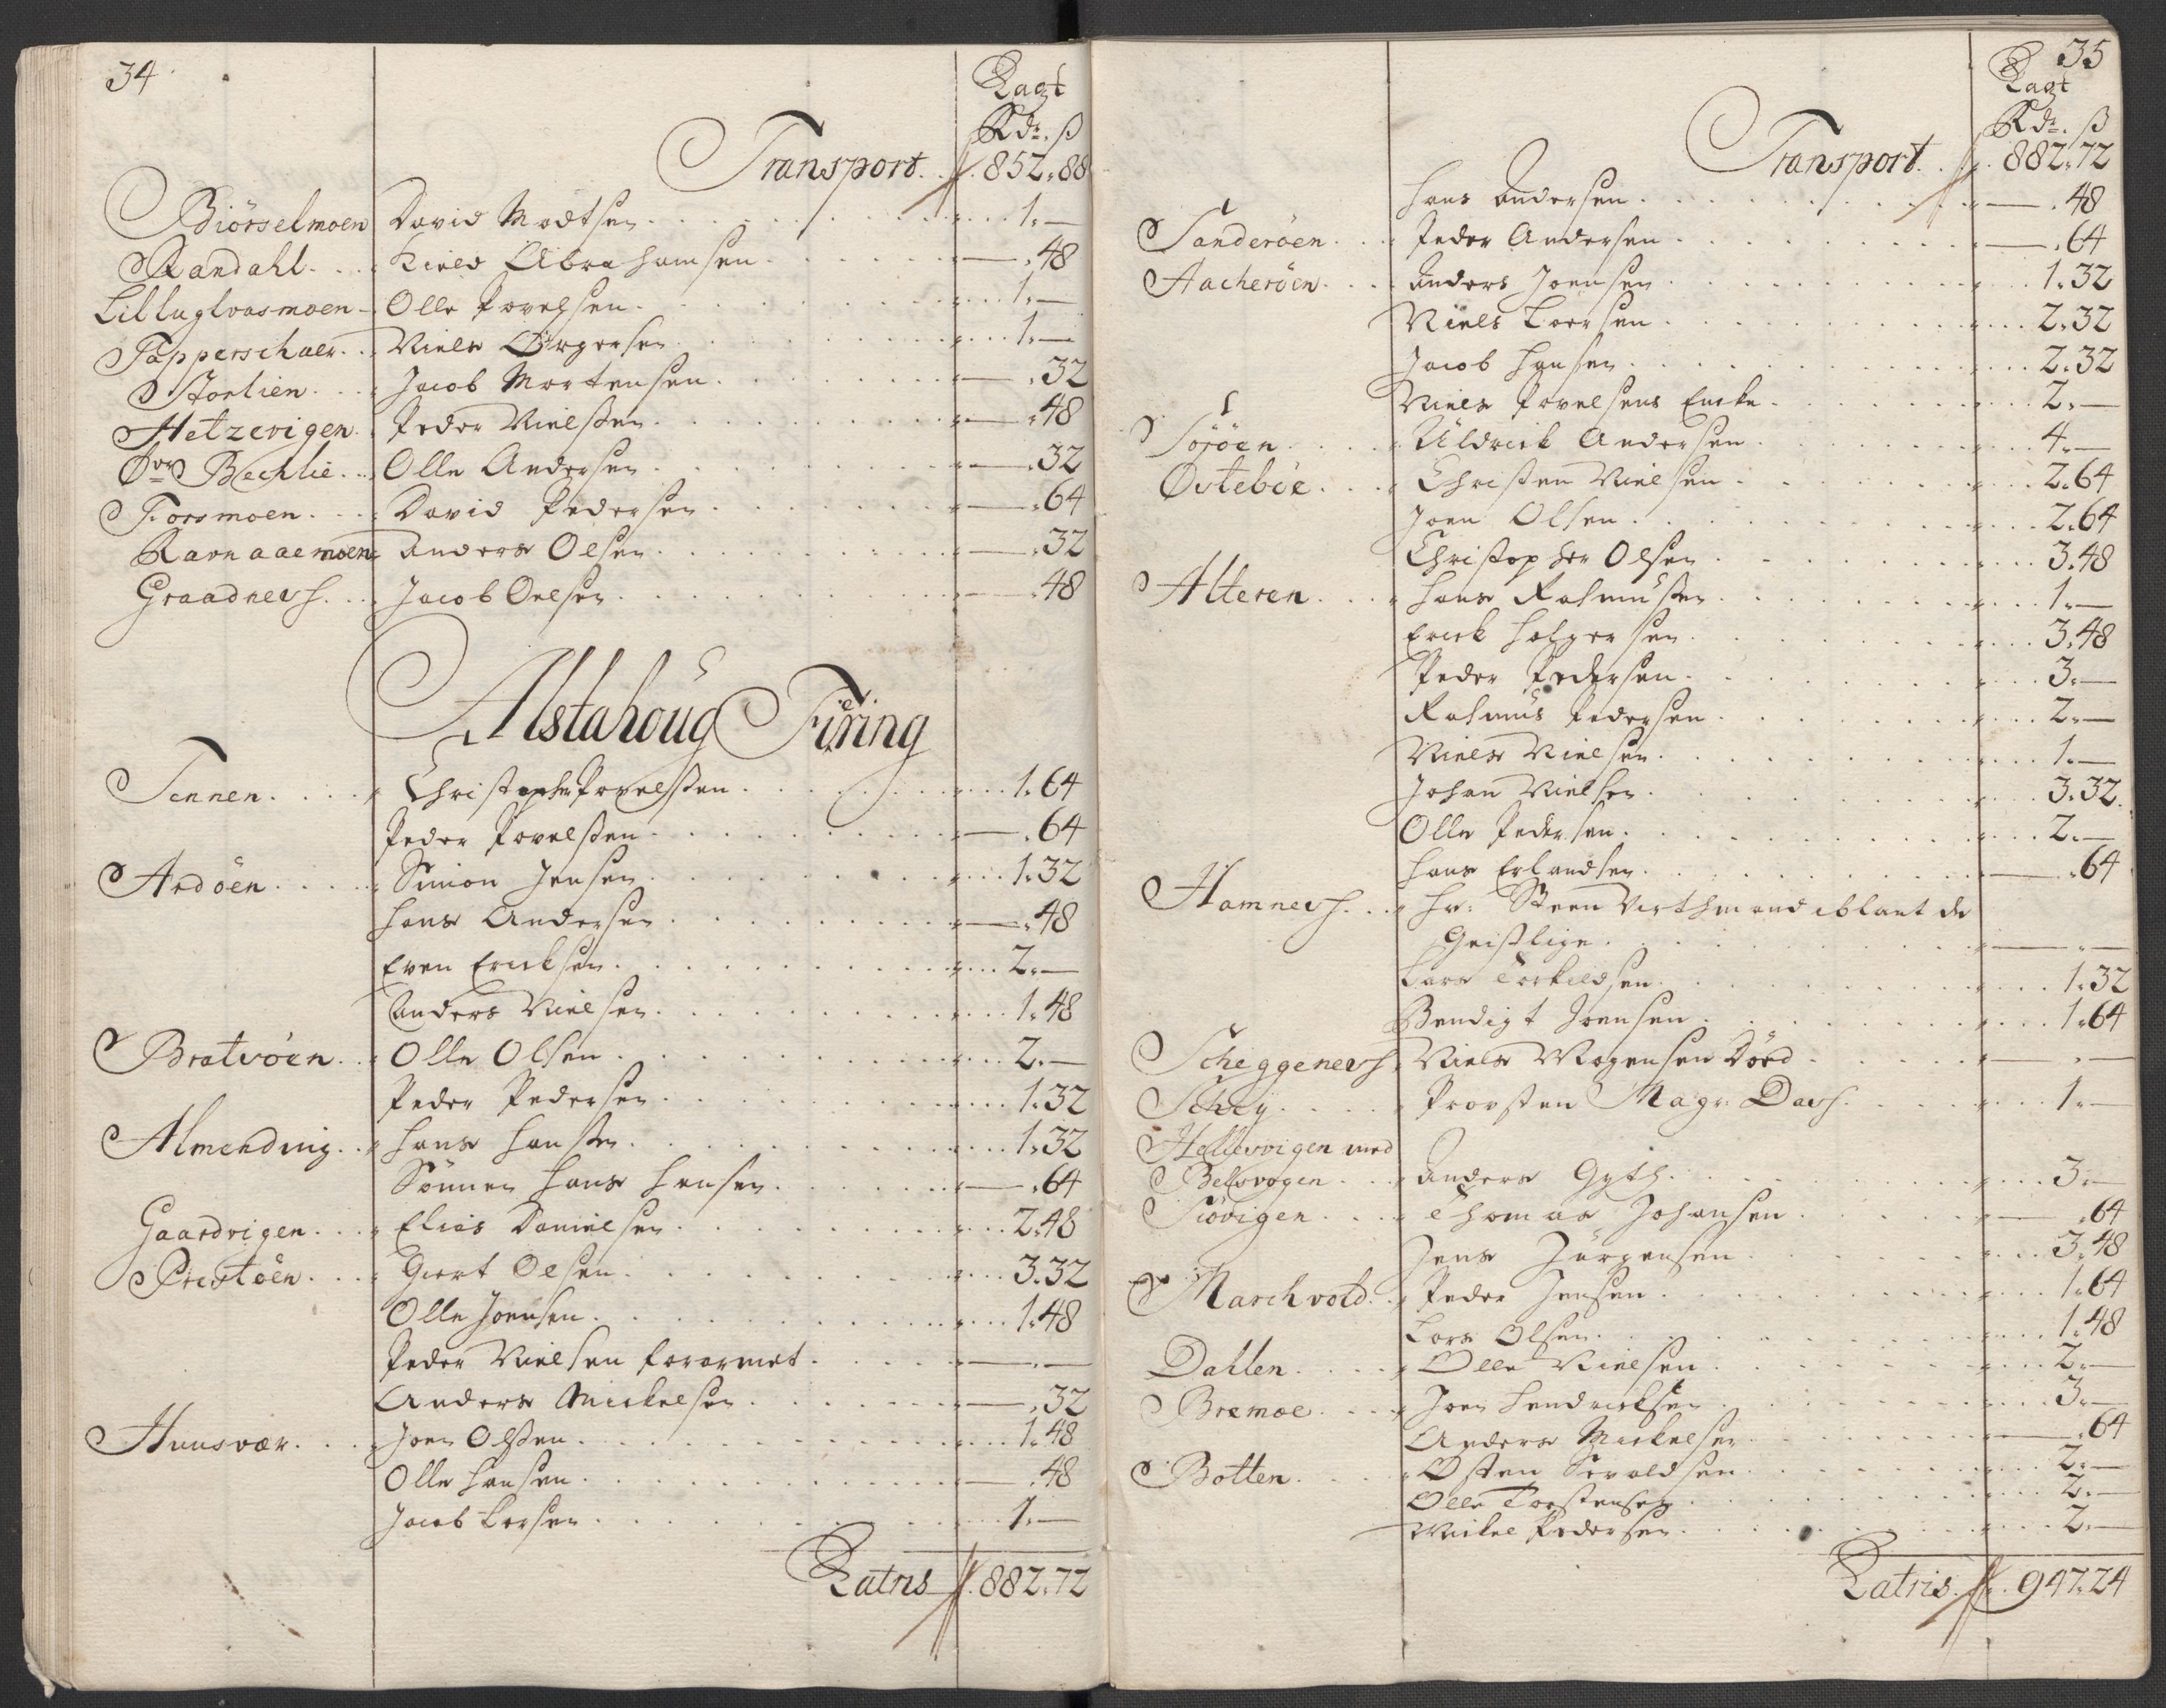 34
Lagt
Rdr. ß
Transport . 852.88
Biörselmoen David Madtsen . 1.—
Randahl Kield Abrahamsen . — . 48
Lilluglvasmoen Olle Povelsen . 1.—
Tapperschaer Niels Jörgersen . 1.—
Storlien Jacob Mortensen . — . 32
Hetzevigen Peder Nielsen . — . 48
Bechlie Olle Andersen . — . 32
Forsmoen David Pedersen . — . 64
Ravnaaemoen Anders Olsen . — . 32
Graadnes Jacob Oelsen . — . 48
Alstahoug Firing
Tennen Christopher Povelsen . 1.64
Peder Povelsen . — . 64
Ardöen Simon Jensen . 1.32
Hans Andersen . — . 48
Even Ericksen . 2.—
Anders Nielsen . 1.48
Bratvöen Olle Olsen . 2.—
Peder Pedersen . 1.32
Almending Hans Hansen . 1.32
Sönnen Hans Hansen . — . 64
Gaardvigen Elias Danielsen . 2.48
Prestöen Giert Olsen . 3.32
Olle Joensen . 1.48
Peder Nielsen forarmet . — . —
Anders Mickelsen . — . 32
Huusvær Joen Olsen . 1.48
Olle Hansen . — . 48
Jacob Larsen . 1.—
Latris . 882.72
35
Lagt
Rdr. ß
Transport . 882.72
Hans Andersen . — . 48
Sanderöen Peder Andersen . — . 64
Aacheröen Anders Joensen . 1.32
Niels Larsen . 2.32
Jacob Hansen . 2.32
Niels Povelsens Encke . 2.—
Söröen Uldrick Andersen . 4.—
Östeböe Christen Nielsen . 2.64
Joen Olsen . 2.64
Christopher Olsen . 3.48
Alteren Hans Rasmusen . 1.—
Erick Holgersen . 3.48
Peder Pedersen . 3.—
Rasmus Pedersen . 2.—
Niels Nielsen . 1.—
Johan Nielsen . 3.32
Olle Pedersen . 2.—
Hans Erlandsen . — . 64
Hamnes Hr: Steen Wirthmand iblant de
Geistlige . — . —
Lars Torkildsen . 1.32
Bendigt Joensen . 1.64
Scheggenes Niels Mogensen Död . — . —
Schey Provsten Magr: Dass . 1.—
Hellesvigen med
Belsvogen Anders Gyth . 3.—
Siövigen Thomas Johansen . — . 64
Jens Jörgensen . 3.48
Marchvold Peder Jensen . 1.64
Lars Olsen . 1.48
Dahlen Olle Nielsen . 2.—
Bremoe Joen Hendricksen . 3.—
Anders Mickelsen . — . 64
Botten Östen Sivaldsen . 2.—
Olle Torstensen . 2.—
Mickel Pedersen . 2.—
Latris . 947.24